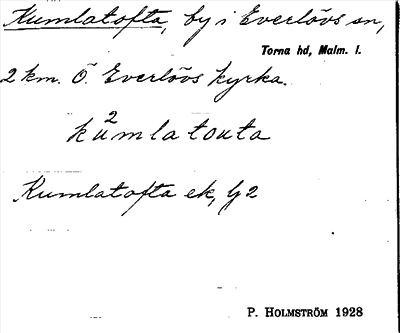 Kumlatofta, by i Everlövs sn,
Torna hd, Malm. l.
2 km. Ö. Everlövs kyrka.
2
kumlatouta
Kumlatofta ek, G2
P. HOLMSTRÖM 1928